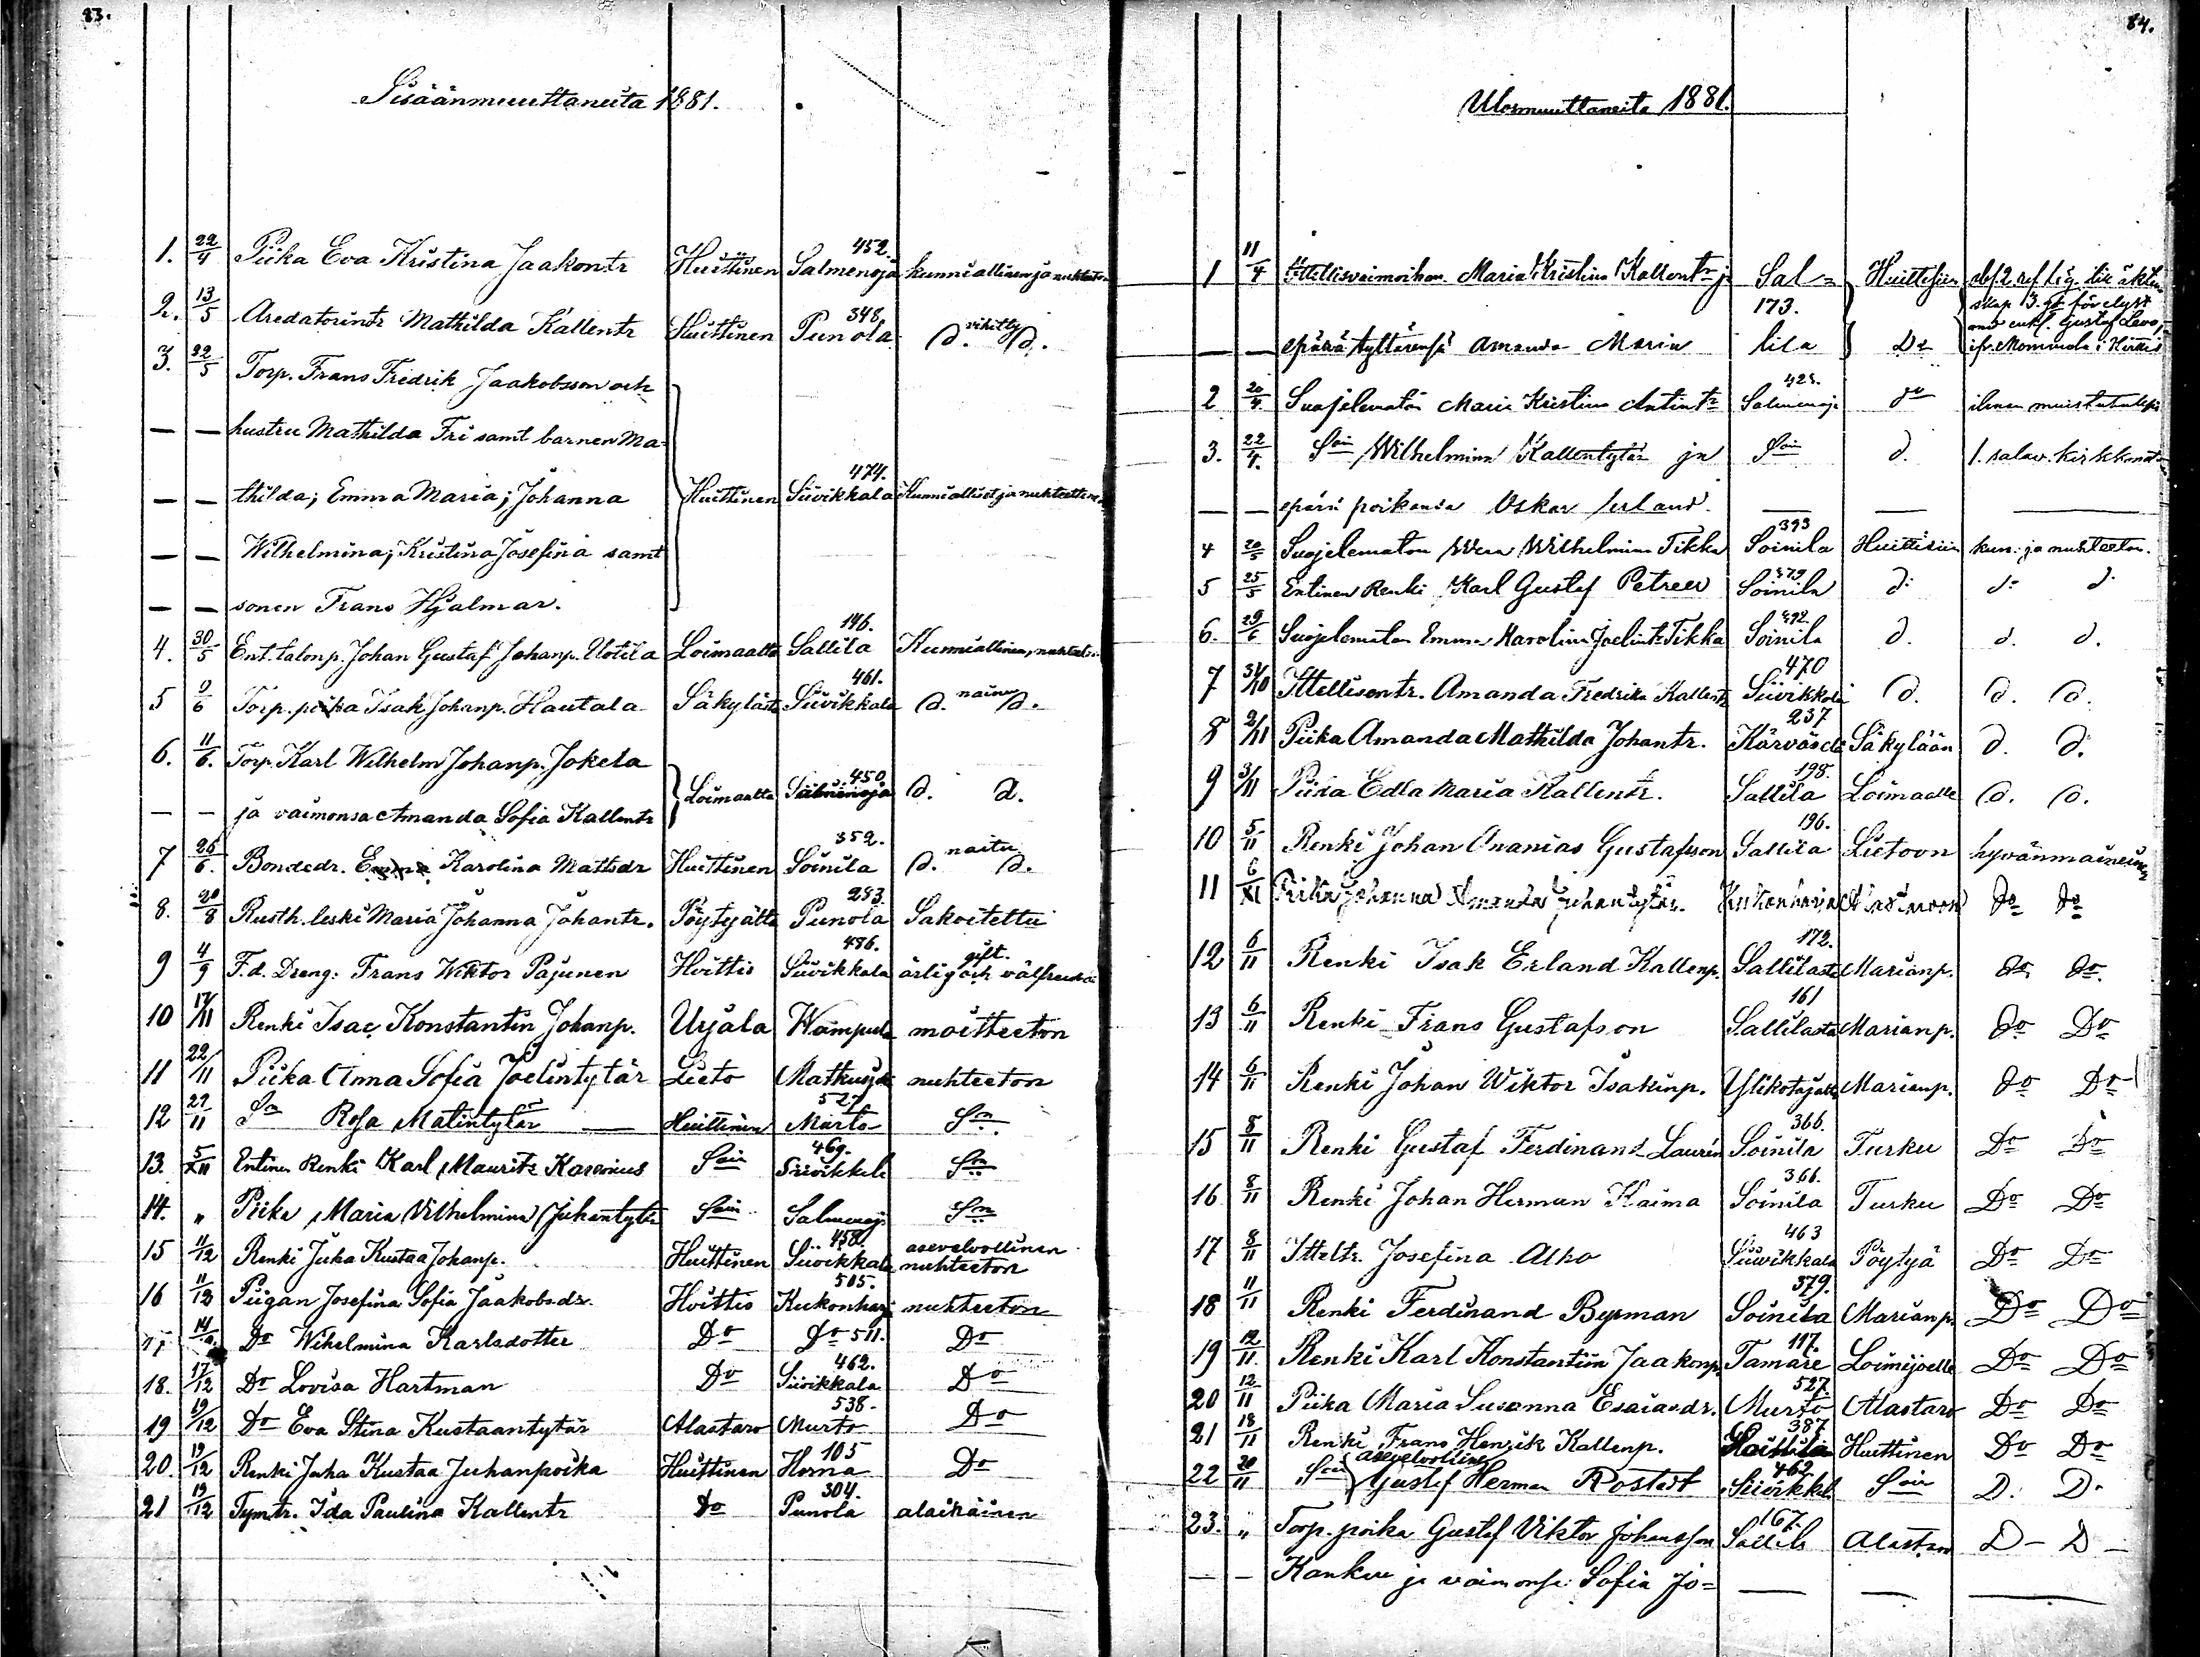 83.
Sisäänmuuttaneita 1881.
1. 22/4 Piika Eva Kristina Jaakontr Huittinen Salmenoja 452. kunniallinen ja nuhteeton
2. 13/5 Aredatorintr Mathilda Kallentr Huittinen Punola 348. d. vihitty d.
3. 22/5 Torp. Frans Fredrik Jaakobsson och
— — hustru Mathilda Fri samt barnen Ma-
— — thilda; Emma Maria; Johanna Huittinen Siivikkala 474. Kunnialliset ja nuhteettomat
— — Wilhelmina; Kristina Josefina samt
— — sonen Frans Hjalmar.
4. 30/5 Ent. talonp. Johan Gustaf Johanp. Uotila Loimaalta Sallila 146. Kunniallinen, nuhteeton
5 9/6 Torp. poika Isak Johanp. Hautala Säkylästä Siivikkala 461. d. nainu d.
6. 11/6. Torp. Karl Wilhelm Johanp. Jokela
— — ja vaimonsa Amanda Sofia Kallentr Loimaalta Salmenoja 450. d. d.
7 26/6. Bondedr. Emma Karolina Mattsdr Huittinen Soinila 352. d. naitu d.
8. 20/8 Rusth. leski Maria Johanna Johantr. Pöytyältä Punola 293. Sakoitettu
9 4/9 F.d. Dreng: Frans Wiktor Pajunen Hvittis Siivikkala 486. ärlig och välfrejdad gift.
10 17/11 Renki Isac Konstantin Johanp. Urjala Wampula moitteeton
11 22/11 Piika Anna Sofia Joelintytär Lieto Matkusjoki nuhteeton
12 29/11 Sa Rosa Matintytär — Huittinen Murto 527 Sm
13. 5/XII Entinen Renki Karl Maurits Karonius Sain Siivikkala 469. Sm
14. „ Piika Maria Vilhelmina Juhantytär Sain Salmenoja Sm
15 11/12 Renki Juha Kustaa Johanp. Huittinen Siivikkala 458. asevelvollinen nuhteeton
16 11/12 Piigan Josefina Sofia Jaakobsdr. Hvittis Kukonharj 505. nuhteeton
17 14/12 Do Wihelmina Karlsdotter Do Do 511. Do
18. 17/12 Do Lovisa Hartman Do Siivikkala 462. Do
19 19/12 Do Eva Stina Kustaantytär Alastaro Murto 538. Do
20. 19/12 Renki Juha Kustaa Juhanpoika Huittinen Horna 105 Do
21 19/12 Tymtr. Ida Paulina Kallentr Do Punola 304. alaikäinen
84.
Ulosmuuttaneita 1881.
1 11/4 Ittellisvaimoihm. Maria Kristina Kallentr ja Sal= Huittisiin
173.
— — epäsä tyttärensä Amanda Maria lila Do
med enkl. Gustaf Levo,
ifr. Mommola i Hvittis
2 20/4. Suojelematon Maria Kristina Antintr Salmenoja 428. do ilman muistutuksia
3. 22/4. Sain Wilhelmina Kallentytär ja Sain d. 1. salav.
— — epäsä poikansa Oskar Erland. — — —
4 20/5 Suojelematon Wilhelmina Tikka Soinila 393 Huittisiin kun. ja nuhteeton.
5 25/5 Entinen Renki Karl Gustaf Petreer Soinila 379 d. d. d.
6. 29/6 Suojelematon Emma Karolina Joelintr Tikka Soinila 492. d. d. d.
7 31/10 Ittellisentr. Amanda Fredrika Kallentr Siivikkala 470 d. d. d.
8 2/11 Piika Amanda Mathilda Johantr. Kärväselä 237 Säkylään d. d.
9 3/11 Piika Edla Maria Kallentr. Sallila 198. Loimaalle d. d.
10 5/11 Renki Johan Ananias Gustafsson Sallila 196. Lietoon hyvänmaineinen
11 6/XI Piika Johanna Amanda Juhantytär. Kukonharja Alastaroon do do
12 6/11 Renki Isak Erland Kallenp. Sallilasta 172. Marianp. do do.
13 6/11 Renki Frans Gustafson Sallilasta 161 Marianp. do Do
14 6/11 Renki Johan Wiktor Isakinp. Marianp. do Do
15 8/11 Renki Gustaf Ferdinand Laurén Soinila 366. Turku Do Do
16 8/11 Renki Johan Herman Kaima Soinila 366. Turku Do Do
17 8/11 Itteltr. Josefina Alho Siivikkala 463 Pöytyä Do Do
18 11/11 Renki Ferdinand Byrman Soinila 379. Marianp. Do Do
19 12/11. Renki Karl Konstantiin Jaakonp. Tamare 117. Loimijoelle Do Do
20 12/11 Piika Maria Susanna Esaiasdr. Murto 527. Alastaro Do Do
21 18/11 Renki Frans Henrik Kallenp. 387 Huittinen Do Do
22 20/11 Sain asevelvollinen Gustaf Herman Rostedt Siivikkal. 462 Sain D. D.
23. „ Torp. poika Gustaf Viktor Johansson Sallila 167. Alastaro D — D —
— — Kankuu ja vaimonsa Sofia Jo= — — —